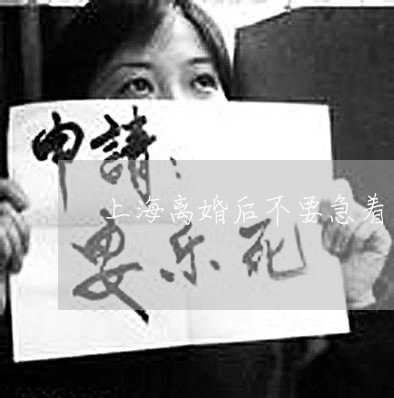 申請：
上海离婚后不要急着
安乐死